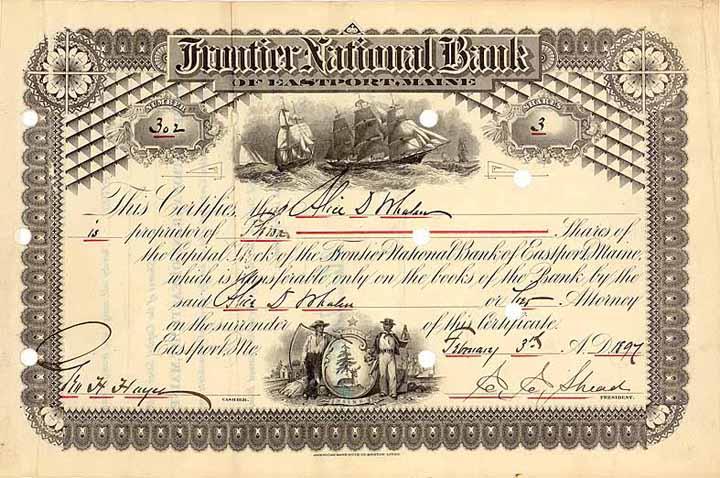 Frontier National Bank
OF EASTPORT, MAINE
NUMBER
302
SHARES
3
This Certifies, that Alice D Whalen
is proprietor of Three Shares of
the Capital Stock of the Frontier National Bank of Eastport, Maine,
which is transferable only on the books of the Bank by the
said Alice D Whalen or Attorney
on the surrender of this Certificate.
Eastport, Me. February 3rd A.D. 1897
CASHIER.
PRESIDENT.